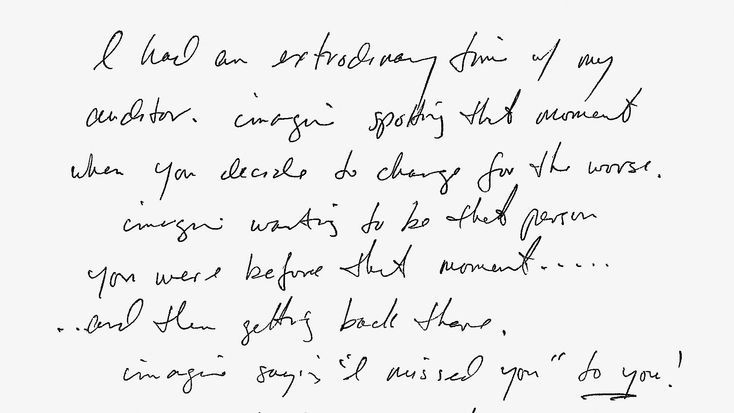 I had an extrodinary time w/ my
auditor. imagine spotting that moment
when you decide to change for the worse.
imagine wanting to be that person
you were before that moment.....
..and then getting back there.
imagine saying "I missed you" to you!